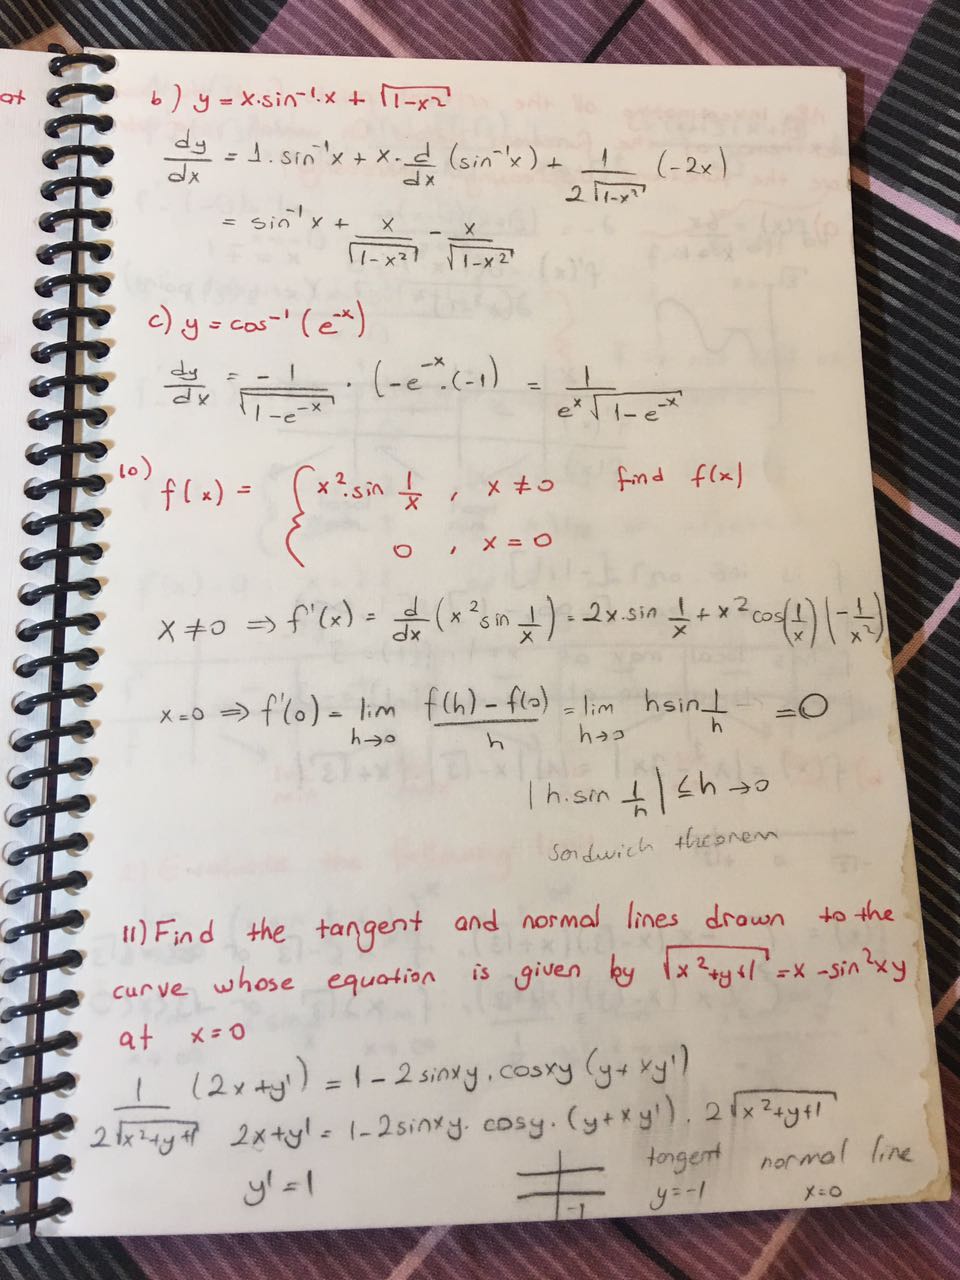 at
b) y = x.sin⁻¹.x + √(1-x²)
dy/dx = 1. sin⁻¹x + x. d/dx (sin⁻¹x) + 1/(2√(1-x²)) (-2x)
= sin⁻¹x + x/√(1-x²) - x/√(1-x²)
c) y = cos⁻¹ (e⁻ˣ)
dy/dx = -1/√(1-e⁻ˣ) . (-e⁻ˣ.(-1) = 1/(eˣ√(1-e⁻ˣ))
10) f(x) = { x².sin 1/x , x ≠ 0 find f(x)
0 , x = 0
x ≠ 0 ⇒ f'(x) = d/dx (x² sin 1/x) = 2x.sin 1/x + x² cos(1/x) (-1/x²)
x=0 ⇒ f'(0) = lim h→0 (f(h) - f(0))/h = lim h→0 h sin 1/h = 0
| h.sin 1/h | ≤ h → 0
sandwich theorem
11) Find the tangent and normal lines drawn to the
curve whose equation is given by √(x²+y+1) = x - sin²xy
at x=0
1/(2√(x²+y+1)) (2x+y') = 1 - 2 sinxy. cosxy (y+ xy')
2x+y' = 1-2sinxy. cosy. (y+xy'). 2√(x²+y+1)
y' = 1
-1
tangent normal line
y=-1 x=0